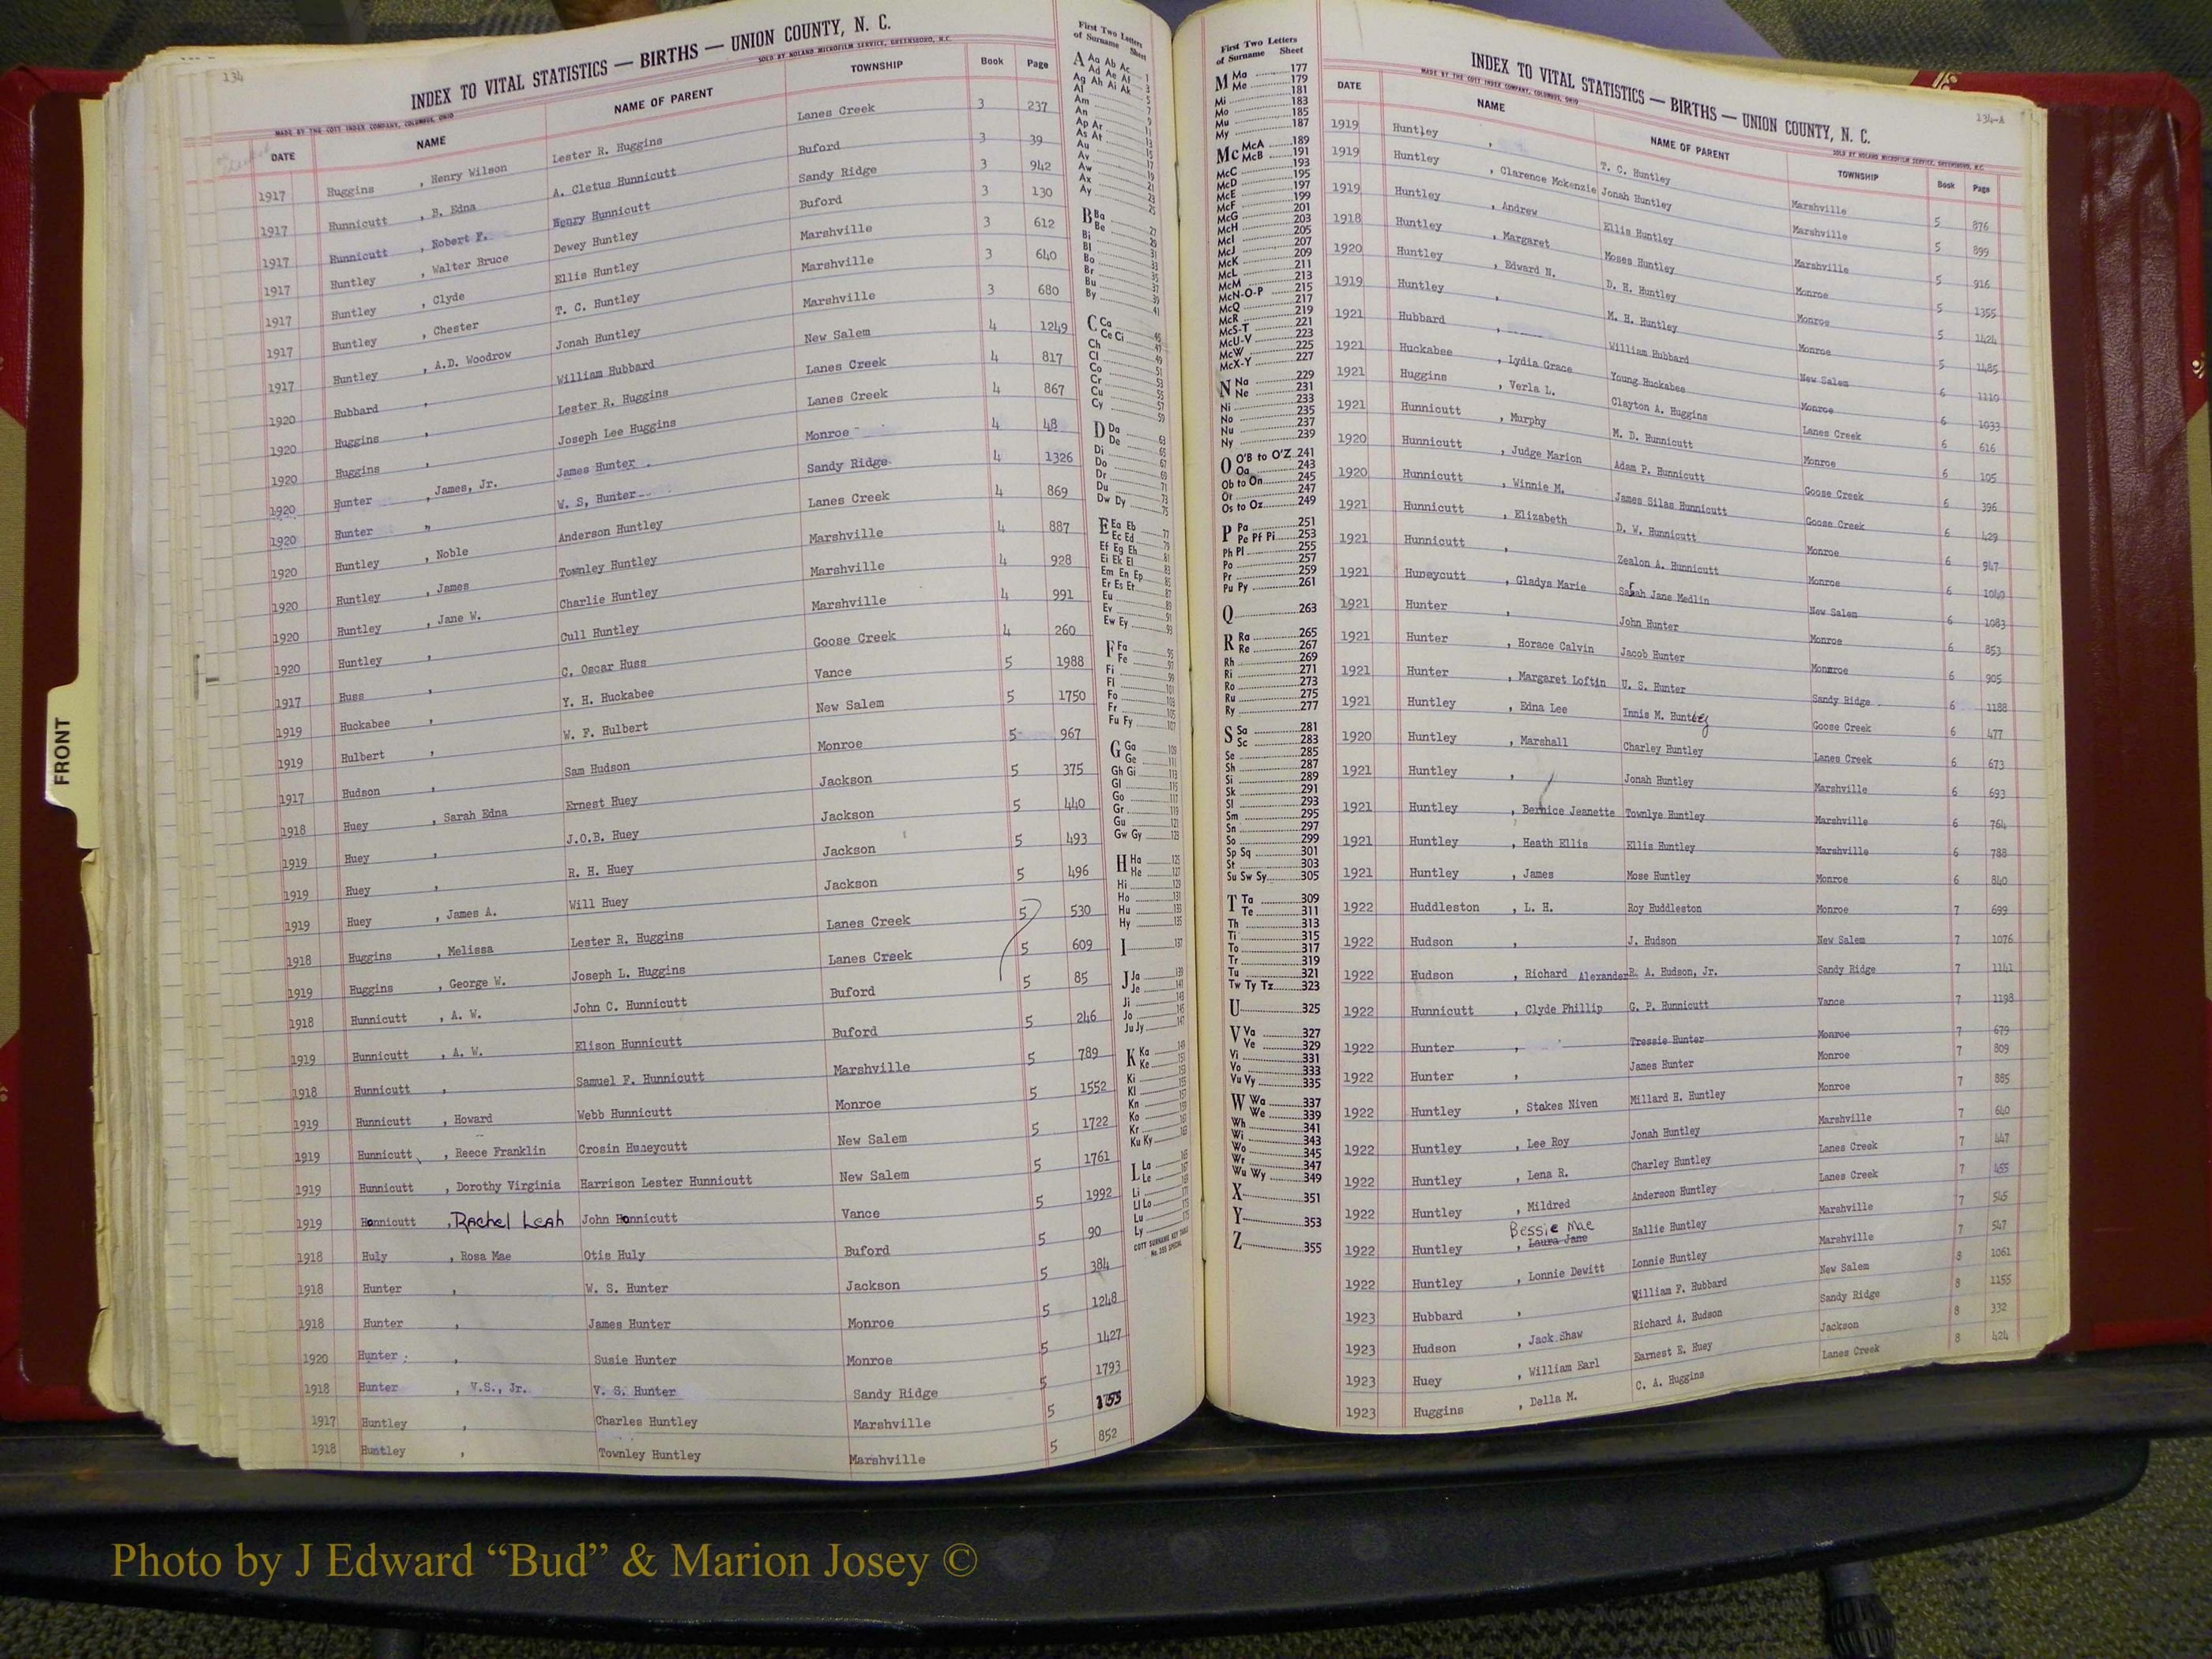 134
INDEX TO VITAL STATISTICS — BIRTHS — UNION COUNTY, N. C.
MADE BY THE COTT INDEX COMPANY, COLUMBUS, OHIO SOLD BY NOLAND MICROFILM SERVICE, GREENSBORO, N.C.
DATE NAME NAME OF PARENT TOWNSHIP Book Page
1917 Huggins , Henry Wilson Lester R. Huggins Lanes Creek 3 237
1917 Hunnicutt , B. Edna A. Cletus Hunnicutt Buford 3 39
1917 Hunnicutt , Robert F. Henry Hunnicutt Sandy Ridge 3 942
1917 Huntley , Walter Bruce Dewey Huntley Buford 3 130
1917 Huntley , Clyde Ellis Huntley Marshville 3 612
1917 Huntley , Chester T. C. Huntley Marshville 3 640
1917 Huntley , A.D. Woodrow Jonah Huntley Marshville 3 680
1920 Hubbard , William Hubbard New Salem 4 1249
1920 Huggins , Lester R. Huggins Lanes Creek 4 817
1920 Huggins , Joseph Lee Huggins Lanes Creek 4 867
1920 Hunter , James, Jr. James Hunter Monroe 4 48
1920 Hunter " W. S, Hunter Sandy Ridge 4 1326
1920 Huntley , Noble Anderson Huntley Lanes Creek 4 869
1920 Huntley , James Townley Huntley Marshville 4 887
1920 Huntley , Jane W. Charlie Huntley Marshville 4 928
1920 Huntley , Cull Huntley Marshville 4 991
1917 Huss , C. Oscar Huss Goose Creek 4 260
1919 Huckabee , Y. H. Huckabee Vance 5 1988
1919 Hulbert , W. F. Hulbert New Salem 5 1750
1917 Hudson , Sam Hudson Monroe 5 967
1918 Huey , Sarah Edna Ernest Huey Jackson 5 375
1919 Huey , J.O.B. Huey Jackson 5 440
1919 Huey , R. H. Huey Jackson 5 493
1919 Huey , James A. Will Huey Jackson 5 496
1918 Huggins , Melissa Lester R. Huggins Lanes Creek 5 530
1919 Huggins , George W. Joseph L. Huggins Lanes Creek 5 609
1918 Hunnicutt , A. W. John C. Hunnicutt Buford 5 85
1919 Hunnicutt , A. W. Elison Hunnicutt Buford 5 246
1918 Hunnicutt , Samuel F. Hunnicutt Marshville 5 789
1919 Hunnicutt , Howard Webb Hunnicutt Monroe 5 1552
1919 Hunnicutt , Reece Franklin Crosin Huneycutt New Salem 5 1722
1919 Hunnicutt , Dorothy Virginia Harrison Lester Hunnicutt New Salem 5 1761
1919 Honnicutt , Rachel Leah John Honnicutt Vance 5 1992
1918 Huly , Rosa Mae Otis Huly Buford 5 90
1918 Hunter , W. S. Hunter Jackson 5 384
1918 Hunter , James Hunter Monroe 5 1248
1920 Hunter , Susie Hunter Monroe 5 1427
1918 Hunter , V.S., Jr. V. S. Hunter Sandy Ridge 5 1793
1917 Huntley , Charles Huntley Marshville 5
1918 Huntley , Townley Huntley Marshville 5 852
First Two Letters of Surname Sheet
A Aa Ab Ac 1
Ad Ae Af 3
Ag Ah Ai Ak 5
Al 7
Am 9
An 11
Ap Ar 13
As At 15
Au 17
Av 19
Aw 21
Ax 23
Ay 25
B Ba 27
Be 29
Bi 31
Bl 33
Bo 35
Br 37
Bu 39
By 41
C Ca 45
Ce Ci 47
Ch 49
Cl 51
Co 53
Cr 55
Cu 57
Cy 59
D Da 63
De 65
Di 67
Do 69
Dr 71
Du 73
Dw Dy 75
E Ea Eb 77
Ec Ed 79
Ef Eg Eh 81
Ei Ek El 83
Em En Ep 85
Er Es Et 87
Eu 89
Ev 91
Ew Ey 93
F Fa 95
Fe 97
Fi 99
Fl 101
Fo 103
Fr 105
Fu Fy 107
G Ga 109
Ge 111
Gh Gi 113
Gl 115
Go 117
Gr 119
Gu 121
Gw Gy 123
H Ha 125
He 127
Hi 129
Ho 131
Hu 133
Hy 135
I 137
J Ja 139
Je 141
Ji 143
Jo 145
Ju Jy 147
K Ka 149
Ke 151
Ki 153
Kl 155
Kn 157
Ko 159
Kr 161
Ku Ky 163
L La 165
Le 167
Li 169
Ll Lo 171
Lu 173
Ly 175
COTT SURNAME KEY TABLE
No. 355 SPECIAL
First Two Letters of Surname Sheet
M Ma 177
Me 179
181
Mi 183
Mo 185
Mu 187
My
Mc McA 189
McB 191
McC 193
McD 195
McE 197
McF 199
McG 201
McH 203
McI 205
McJ 207
McK 209
McL 211
McM 213
McN-O-P 215
McQ 217
McR 219
McS-T 221
McU-V 223
McW 225
McX-Y 227
N Na 229
Ne 231
Ni 233
No 235
Nu 237
Ny 239
O O'B to O'Z 241
Oa 243
Ob to On 245
Or 247
Os to Oz 249
P Pa 251
Pe Pf Pi 253
Ph Pl 255
Po 257
Pr 259
Pu Py 261
Q 263
R Ra 265
Re 267
Rh 269
Ri 271
Ro 273
Ru 275
Ry 277
S Sa 281
Sc 283
Se 285
Sh 287
Si 289
Sk 291
Sl 293
Sm 295
Sn 297
So 299
Sp Sq 301
St 303
Su Sw Sy 305
T Ta 309
Te 311
Th 313
Ti 315
To 317
Tr 319
Tu 321
Tw Ty Tz 323
U 325
V Va 327
Ve 329
Vi 331
Vo 333
Vu Vy 335
W Wa 337
We 339
Wh 341
Wi 343
Wo 345
Wr 347
Wu Wy 349
X 351
Y 353
Z 355
134-A
INDEX TO VITAL STATISTICS — BIRTHS — UNION COUNTY, N. C.
MADE BY THE COTT INDEX COMPANY, COLUMBUS, OHIO SOLD BY NOLAND MICROFILM SERVICE, GREENSBORO, N.C.
DATE NAME NAME OF PARENT TOWNSHIP Book Page
1919 Huntley , T. C. Huntley Marshville 5 876
1919 Huntley , Clarence Mckenzie Jonah Huntley Marshville 5 899
1919 Huntley , Andrew Ellis Huntley Marshville 5 916
1918 Huntley , Margaret Moses Huntley Monroe 5 1355
1920 Huntley , Edward N. D. H. Huntley Monroe 5 1424
1919 Huntley , M. H. Huntley Monroe 5 1485
1921 Hubbard , William Hubbard New Salem 6 1110
1921 Huckabee , Lydia Grace Young Huckabee Monroe 6 1033
1921 Huggins , Verla L. Clayton A. Huggins Lanes Creek 6 616
1921 Hunnicutt , Murphy M. D. Hunnicutt Monroe 6 105
1920 Hunnicutt , Judge Marion Adam P. Hunnicutt Goose Creek 6 396
1920 Hunnicutt , Winnie M. James Silas Hunnicutt Goose Creek 6 429
1921 Hunnicutt , Elizabeth D. W. Hunnicutt Monroe 6 947
1921 Hunnicutt , Zealon A. Hunnicutt Monroe 6 1040
1921 Huneycutt , Gladys Marie Sarah Jane Medlin New Salem 6 1083
1921 Hunter , John Hunter Monroe 6 853
1921 Hunter , Horace Calvin Jacob Hunter Monroe 6 905
1921 Hunter , Margaret Loftin U. S. Hunter Sandy Ridge 6 1188
1921 Huntley , Edna Lee Innis M. Huntley Goose Creek 6 477
1920 Huntley , Marshall Charley Huntley Lanes Creek 6 673
1921 Huntley , Jonah Huntley Marshville 6 693
1921 Huntley , Bernice Jeanette Townlye Huntley Marshville 6 764
1921 Huntley , Heath Ellis Ellis Huntley Marshville 6 788
1921 Huntley , James Mose Huntley Monroe 6 840
1922 Huddleston , L. H. Roy Huddleston Monroe 7 699
1922 Hudson , J. Hudson New Salem 7 1076
1922 Hudson , Richard Alexander R. A. Hudson, Jr. Sandy Ridge 7 1141
1922 Hunnicutt , Clyde Phillip G. P. Hunnicutt Vance 7 1198
1922 Hunter , Tressie Hunter Monroe 7 679
1922 Hunter , James Hunter Monroe 7 809
1922 Huntley , Stakes Niven Millard H. Huntley Monroe 7 885
1922 Huntley , Lee Roy Jonah Huntley Marshville 7 640
1922 Huntley , Lena R. Charley Huntley Lanes Creek 7 447
1922 Huntley , Mildred Anderson Huntley Lanes Creek 7 455
Bessie Mae
1922 Huntley , Laura Jane Hallie Huntley Marshville 7 545
1922 Huntley , Lonnie Dewitt Lonnie Huntley Marshville 7 547
1923 Hubbard , William F. Hubbard New Salem 8 1061
1923 Hudson , Jack Shaw Richard A. Hudson Sandy Ridge 8 1155
1923 Huey , William Earl Earnest E. Huey Jackson 8 332
1923 Huggins , Della M. C. A. Huggins Lanes Creek 8 424
FRONT
Photo by J Edward “Bud” & Marion Josey ©